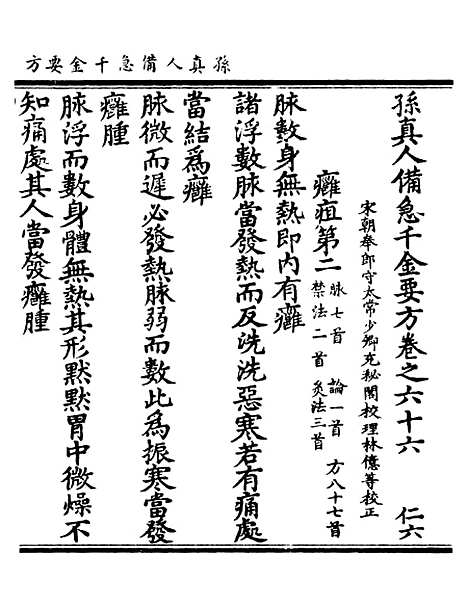 孫真人備急千金要方
孫真人備急千金要方卷之六十六 仁六
宋朝奉郎守太常少卿充秘閣校理林億等校正
癰疽第二 脉七首 論一首 方八十七首
禁法二首 灸法三首
脉數身無熱即内有癰
諸浮數脉當發熱而反洗洗惡寒若有痛處
當結爲癰
脉微而遲必發熱脉弱而數此爲振寒當發
癰腫
脉浮而數身體無熱其形默默胃中微燥不
知痛處其人當發癰腫